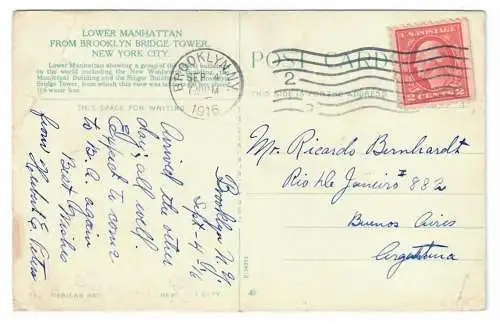 LOWER MANHATTAN
FROM BROOKLYN BRIDGE TOWER,
NEW YORK CITY.
Lower Manhattan showing a group of the
in the world including the New Woolworth Building, the
Municipal Building and the Singer Building
Bridge Tower, from which this view was
THIS SPACE FOR WRITING
Brooklyn N.Y.
Sept-4/16
Arrived the other
day, all well.
Expect to come
to B.A. again
Best Wishes
from
POST CARD
THIS SIDE IS FOR THE ADDRESS
BROOKLYN, N.Y.
SEP
1916
2
2 CENTS 2
Mr. Ricardo Bernhardt
Rio de Janeiro 882
Buenos Aires
Argentina